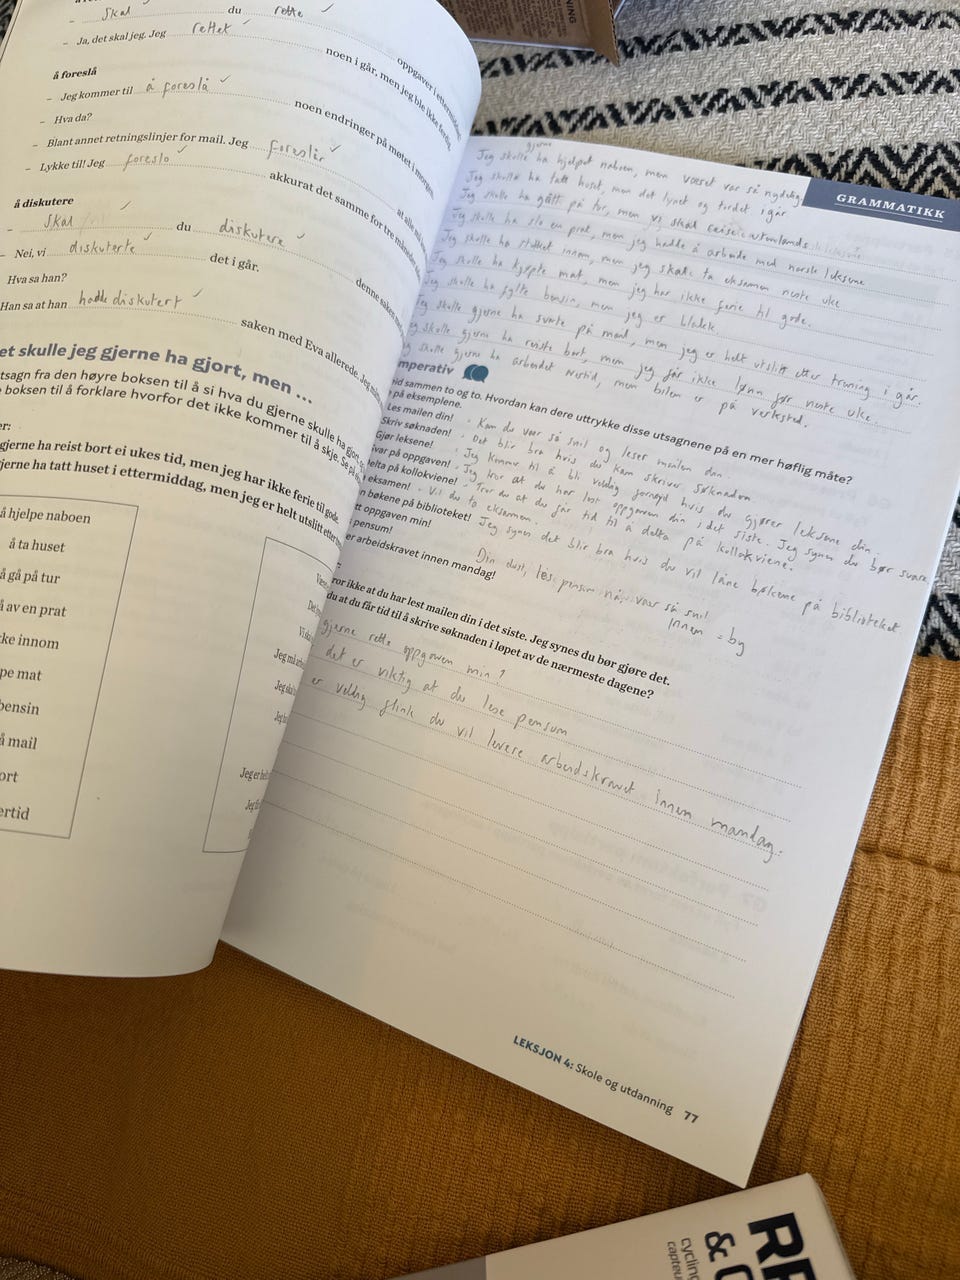 Skal du rette oppgaver i ettermiddag?
– Ja, det skal jeg. Jeg rettet noen i går, men jeg ble ikke ferdig.
å foreslå
– Jeg kommer til å foreslå noen endringer på møtet i morgen.
– Hva da?
– Blant annet retningslinjer for mail. Jeg foreslår at alle
– Lykke til! Jeg foreslo akkurat det samme for tre måneder
å diskutere
– Skal du diskutere denne saken
– Nei, vi diskuterte det i går.
Hva sa han?
Han sa at han hadde diskutert saken med Eva allerede.
et skulle jeg gjerne ha gjort, men ...
tsagn fra den høyre boksen til å si hva du gjerne skulle ha gjort,
boksen til å forklare hvorfor det ikke kommer til å skje. Se på
er:
gjerne ha reist bort ei ukes tid, men jeg har ikke ferie til gode.
jerne ha tatt huset i ettermiddag, men jeg er helt utslitt etter
å hjelpe naboen
å ta huset
å gå på tur
å av en prat
ke innom
pe mat
bensin
å mail
ort
ertid
Været
Det
Vi
Jeg må
Jeg ska
Jeg
Jeg er helt
Jeg
GRAMMATIKK
gjerne
Jeg skulle ha hjelpet naboen, men været var så nydelig
Jeg skulle ha tatt huset, men det lynet og tordet i går
Jeg skulle ha gått på tur, men vi skal reise utenlands
Jeg skulle ha slo en prat, men jeg hadde å arbeide med norske leksene
Jeg skulle ha stukket innom, men jeg skal ta eksamen neste uke
Jeg skulle ha kjøpte mat, men jeg har ikke ferie til gode.
Jeg skulle ha fylte bensin, men jeg er blakk.
Jeg skulle gjerne ha svarte på mail, men jeg er helt utslitt etter trening i går.
Jeg skulle gjerne ha reiste bort, men jeg får ikke lønn før neste uke.
skulle gjerne ha arbeidet overtid, men bilen er på verksted.
mperativ
id sammen to og to. Hvordan kan dere uttrykke disse utsagnene på en mer høflig måte?
på eksemplene.
Les mailen din! · Kan du vær så snil og leser mailen din
Skriv søknaden! · Det blir bra hvis du kan skriver søknaden
Gjør leksene! · Jeg kommer til å bli veldig fornøyd hvis du gjører leksene din.
var på oppgaven! · Jeg tror at du har lest oppgaven din i det siste. Jeg synes du bør svare
elta på kollokviene! · Tror du at du får tid til å delta på kollokviene.
eksamen! · Vil du ta eksamen.
n bøkene på biblioteket! Jeg synes det blir bra hvis du vil låne bøkene på biblioteket
tt oppgaven min!
pensum! Din dust, les pensum nå, vær så snil
er arbeidskravet innen mandag! Innen = by
ror ikke at du har lest mailen din i det siste. Jeg synes du bør gjøre det.
du at du får tid til å skrive søknaden i løpet av de nærmeste dagene?
gjerne rette oppgaven min?
det er viktig at du lese pensum
er veldig flink du vil levere arbeidskravet innen mandag.
LEKSJON 4: Skole og utdanning 77
RE
&
cycling
capteu